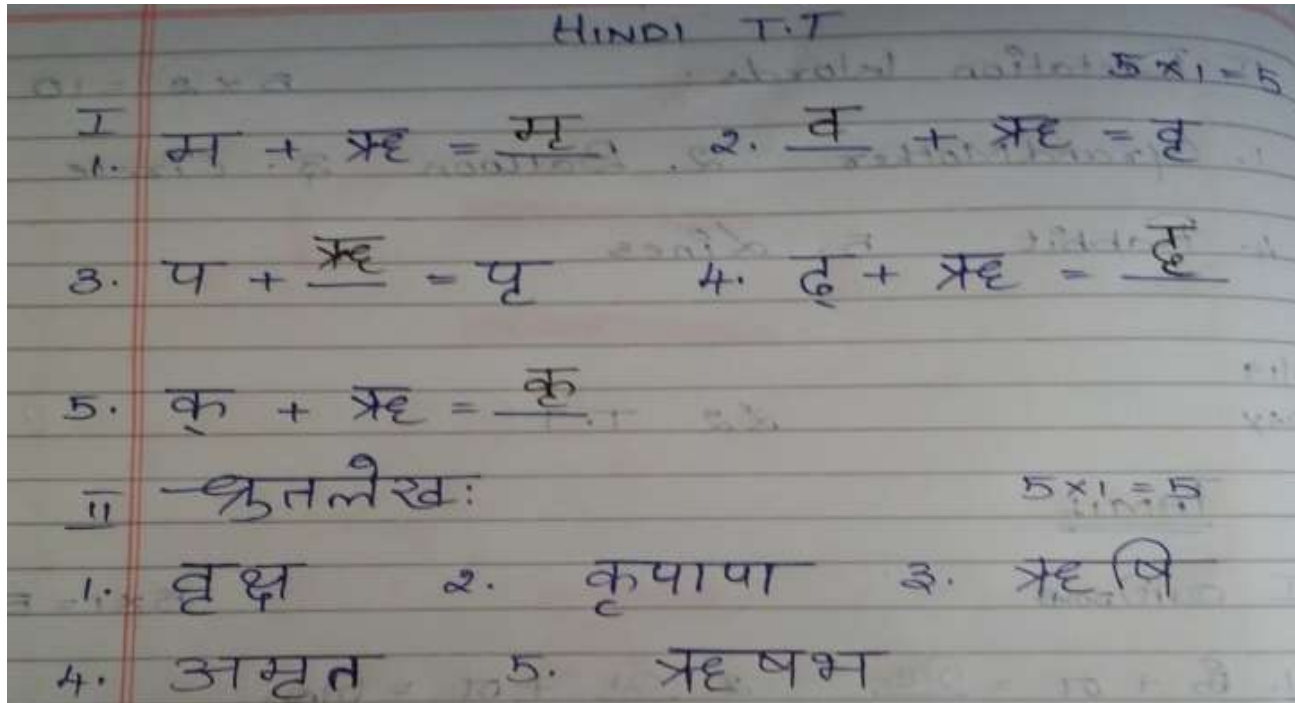 HINDI T.T
5 × 1 = 5
I
1. म + ऋ = मृ. 2. व + ऋ = वृ
3. प + ऋ = पृ 4. द् + ऋ = दृ
5. क् + ऋ = कृ
II श्रुतलेख: 5 × 1 = 5
1. वृक्ष 2. कृपापा 3. ऋषि
4. अमृत 5. ऋषभ